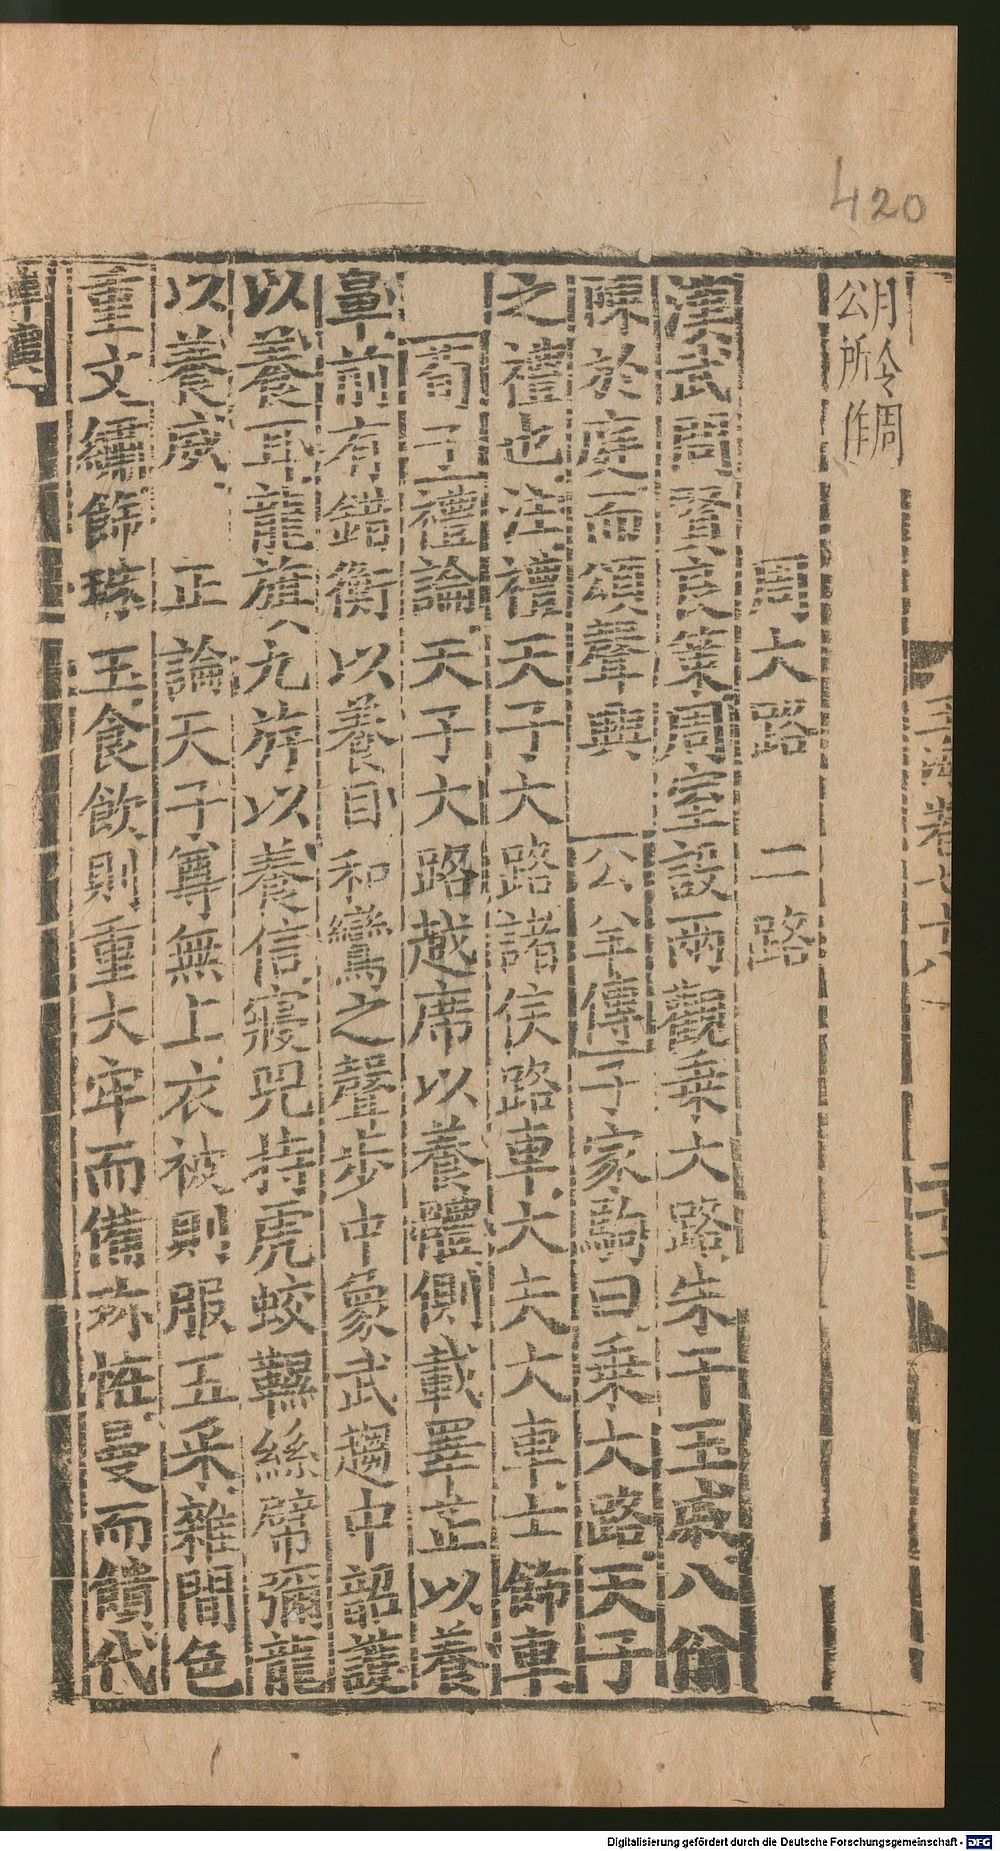 420
月令周
公所作
周大路　二路
漢武問賢良策周室設兩觀乗大路朱干玉戚八佾
陳於庭而頌聲興　公羊傳子家駒曰乗大路天子
之禮也注禮天子大路諸侯路車大夫大車士飾車
荀子禮論天子大路越席以養體側載睪芷以養
鼻前有錯衡以養目和鸞之聲步中象武趨中韶護
以養耳龍旗九斿以養信寢兕持虎蛟韅絲幦彌龍
以養威　正論天子尊無上衣被則服五采雜間色
重文繡飾珠玉食飲則重大牢而備珎怪曼而饋代
車禮
Digitalisierung gefördert durch die Deutsche Forschungsgemeinschaft - DFG